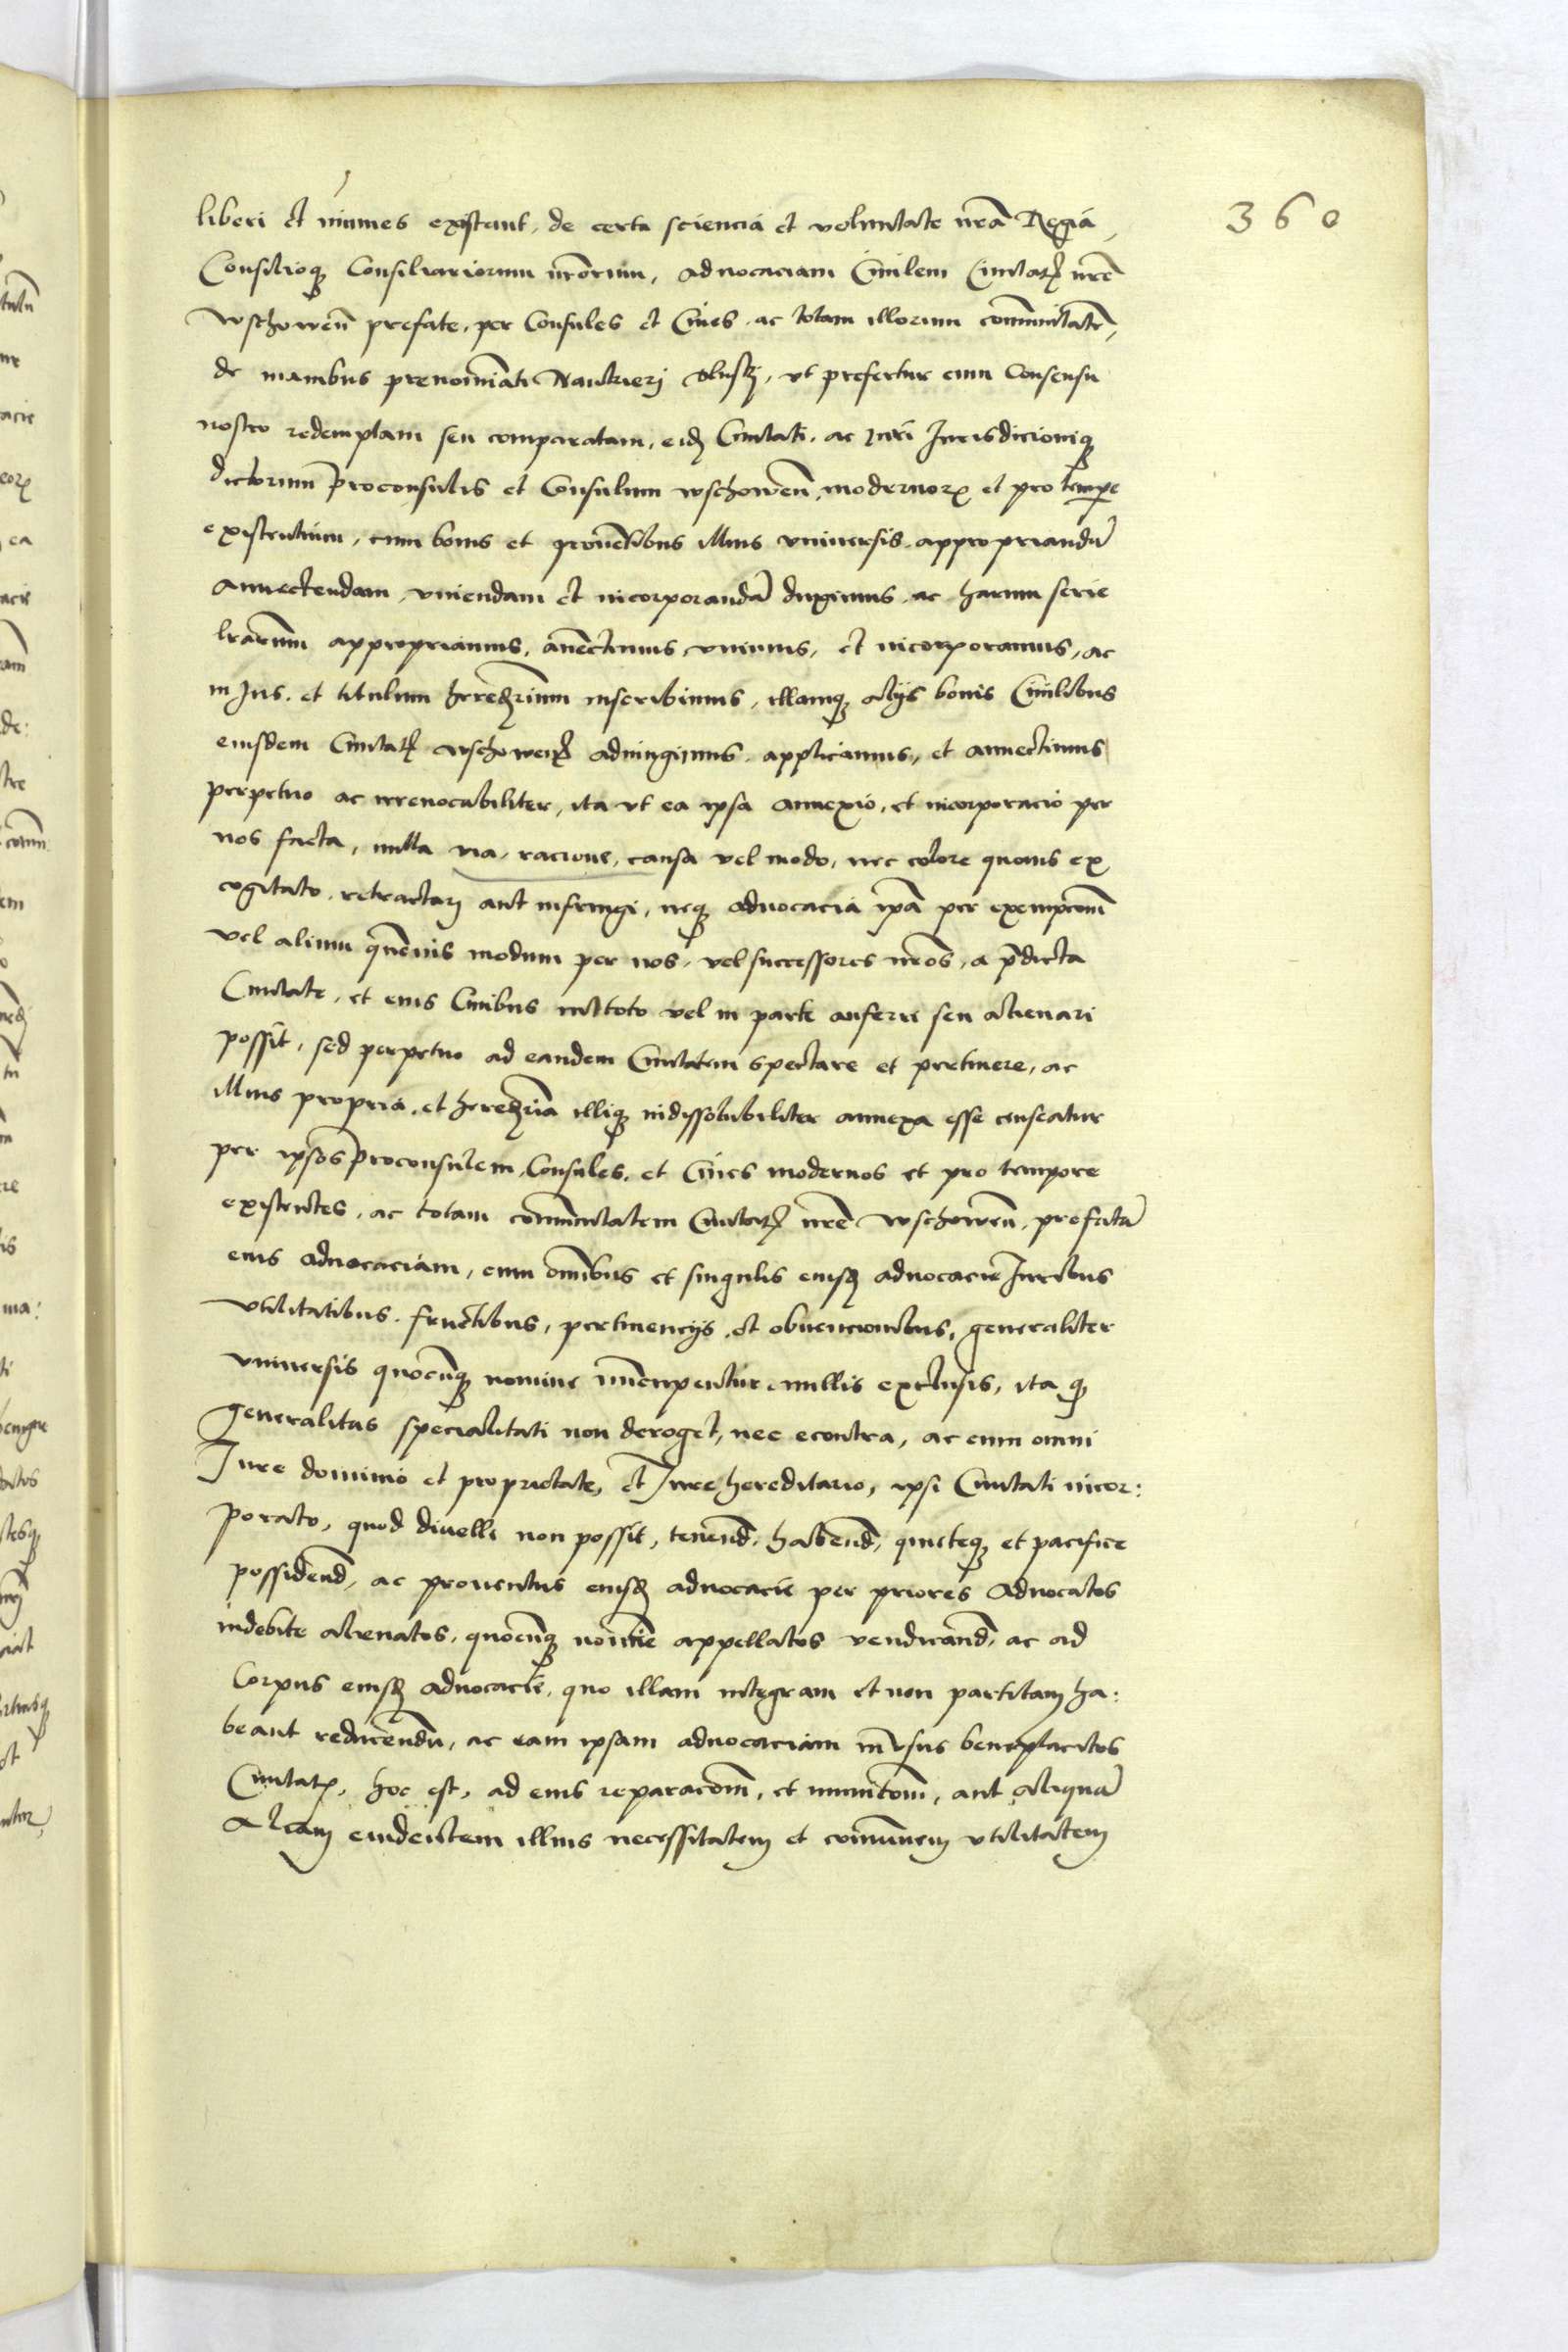 360
liberi et immunes existant, de certa sciencia et voluntate nrã Regia,
Consilioq Consiliariorum nrõrum, advocaciam Civilem Civitatis nrẽ
Wschowen̄ prefate, per Consules et Cives ac totam illorum com̄unitatẽ,
de manibus prenomiñati ut prefertur cum Consensu
nostro redemptam seu comparatam, eidẽ Civitati, ac Juri Jurisdicioniq
dictorum Proconsulis et Consulum wschowen̄, modernorꝝ et pro tempe
existentium, cum bonis et proventibus illius universis, appropriandã
annectendam, uniendam et incorporandã duximus, ac harum serie
lr̃arum appropriamus, anectimus, unimus, et incorporamus, ac
in Jus et titulum heredr̃ium inscribimus, illamq alijs bonis Civilibus
eiusdem Civitatis wschowens adiungimus, applicamus, et annectimus
perpetuo ac irrevocabiliter, ita ut ea ipsa annexio, et incorporacio per
nos facta, nulla via, racione, causa vel modo, nec colore quovis ex
cogitato, retractari aut infringi, neq advocacia ip̃a per exempcionẽ
vel alium quẽvis modum per nos, vel successores nr̃os, a p̃dicta
Civitate, et eius Civibus in toto vel in parte auferri seu alienari
possit, sed perpetuo ad eandem Civitatem spectare et pertinere, ac
illius propria, et heredr̃ia illiq indissolubiliter annexa esse censeatur
per ipsos Proconsulem, Consules, et Cives modernos et pro tempore
existentes, ac totam com̄unitatem Civitatis nrẽ wschowen̄, prefatã
eius advocaciam, cum om̃ibus et singulis eiusdẽ advocacie Juribus
utilitatibus, fructibus, pertinencijs, et obvencionibus, generaliter
universis quocũq nomine nũcupentur, nullis exclusis, ita q
generalitas specialitati non deroget, nec econtra, ac cum omni
Jure dominio et proprietate, et Jure hereditario, ipsi Civitati incor:
porato, quod divelli non possit, tenend̃, habend̃, quieteq et pacifice
possidend̃, ac proventus eiusdẽ advocacie per priores Advocatos
indebite alienatos, quocũq nomĩe appellatos vendicand̃, ac ad
Corpus eiusdẽ advocacie, quo illam integram et non partitam ha:
beant reducendũ, ac eam ipsam advocaciam in usus beneplacitos
Civitatis, hoc est, ad eius reparacionẽ, et municionẽ, aut aliquã
aliam evidentem illius necessitatem et comũnem utilitatem